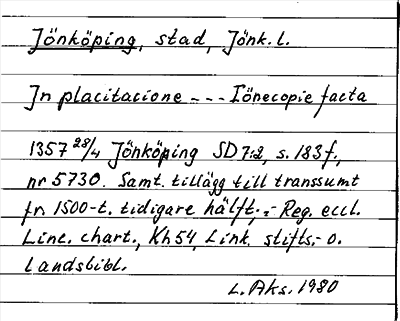 Jönköping, stad, Jönk. l.
Jn placitacione --- Iönecopie facta
1357 28/4 Jönköping SD 7:2, s. 183 f,
nr 5730. Samt. tillägg till transsumt
fr. 1500-t. tidigare hälft; - Reg. eccl.
Linc. chart., Kh 54, Link. stifts- o.
landsbibl.
L. Aks. 1980